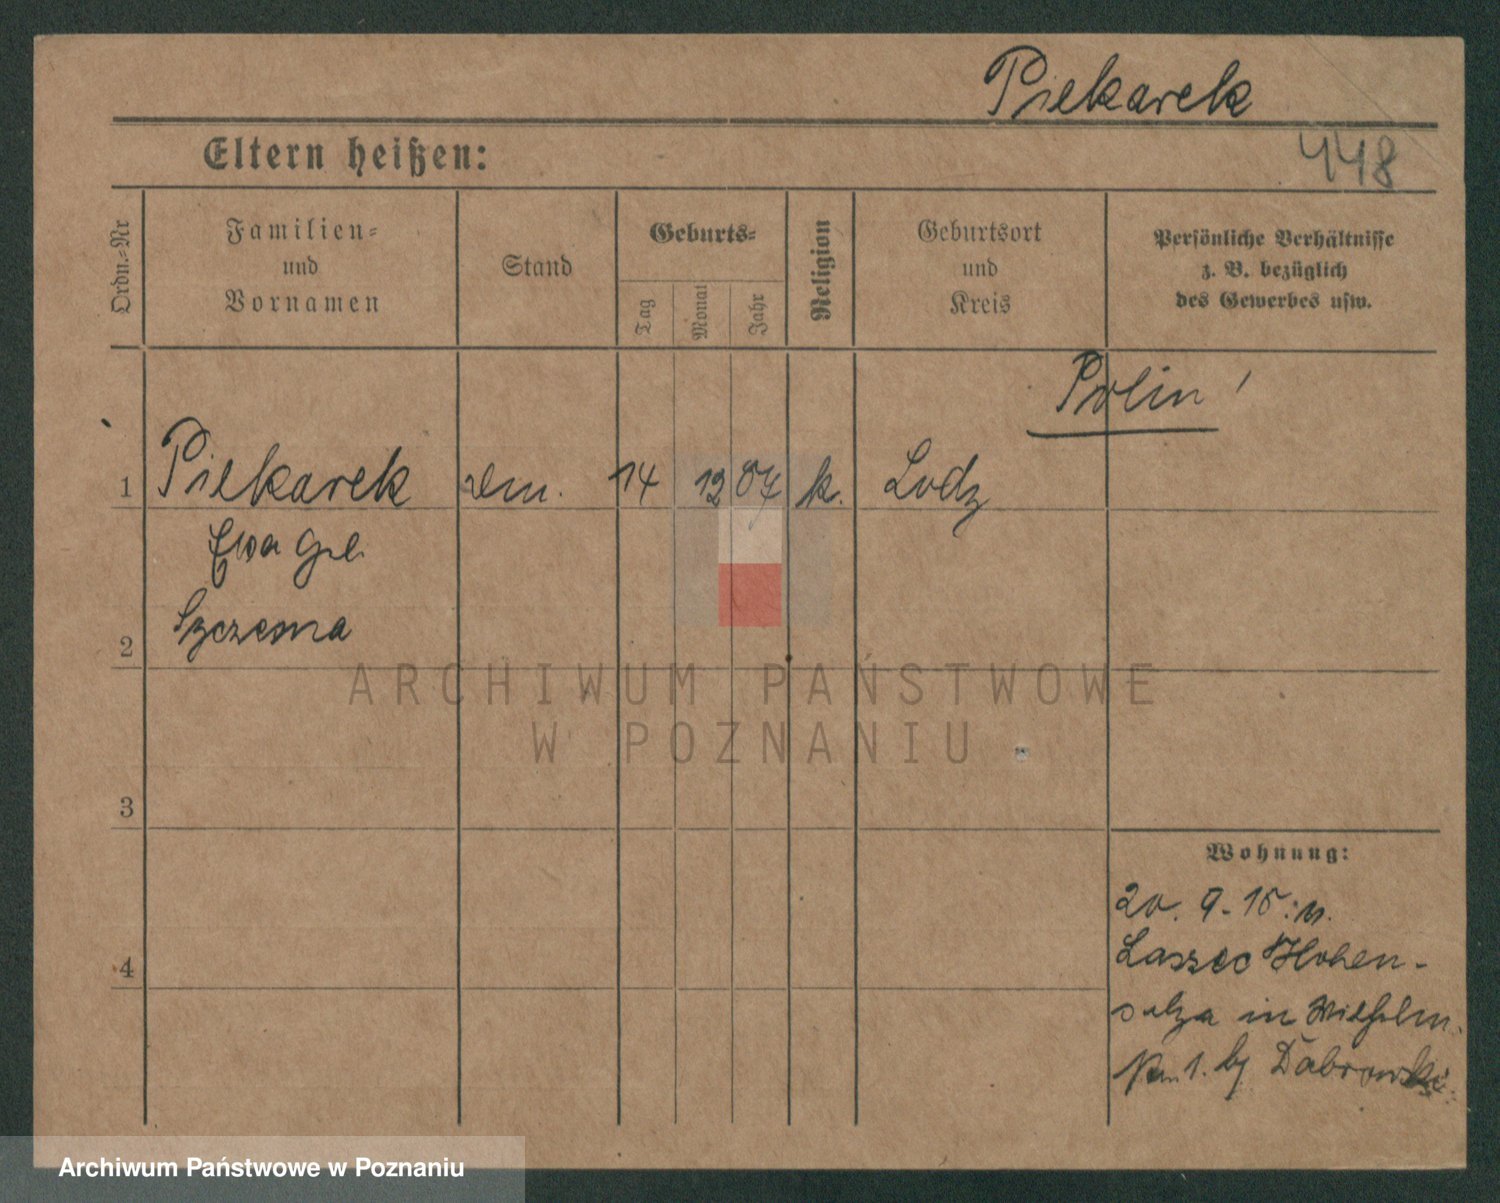 Piekarek
448
Eltern heißen:
Ordn.-Nr
Familien-
und
Vornamen
Stand
Geburts-
Tag
Monat
Jahr
Religion
Geburtsort
und
Kreis
Persönliche Verhältnisse
z. B. bezüglich
des Gewerbes usw.
Polin
1 Piekarek 14 12 87 k. Lodz
Ewa geb
Szczesna
2
3
4
Wohnung:
20. 9. 15:
Hohen-
salza in Wilhelm
1. by Dabrowski
ARCHIWUM PAŃSTWOWE
W POZNANIU
Archiwum Państwowe w Poznaniu